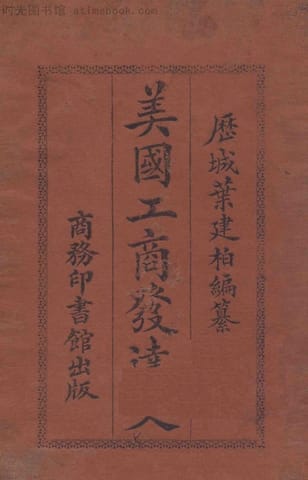 时光图书馆 atimebook.com
歷城葉建柏編纂
美國工商發
商務印書館出版